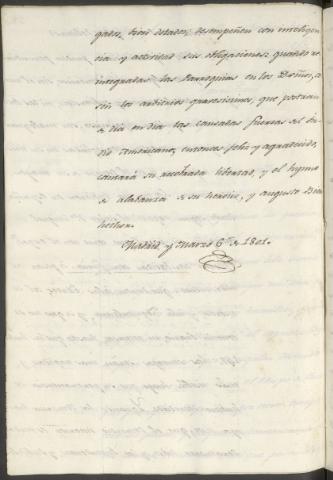 gados, bien estados, desempeñen con inteligen
cia y actividad sus obligaciones; quando re
integradas las Parroquias en los Diezmos, ce
sen los arbitrios quantiosisimos, que postran
de dia en dia las cansadas fuerzas del In
dio Americano; entonces feliz y agradecido,
cantará su recobrada libertad, y el hymno
de alabanza de su heroico, y augusto Bien
hechor.
Madrid y Marzo 6 de 1801.